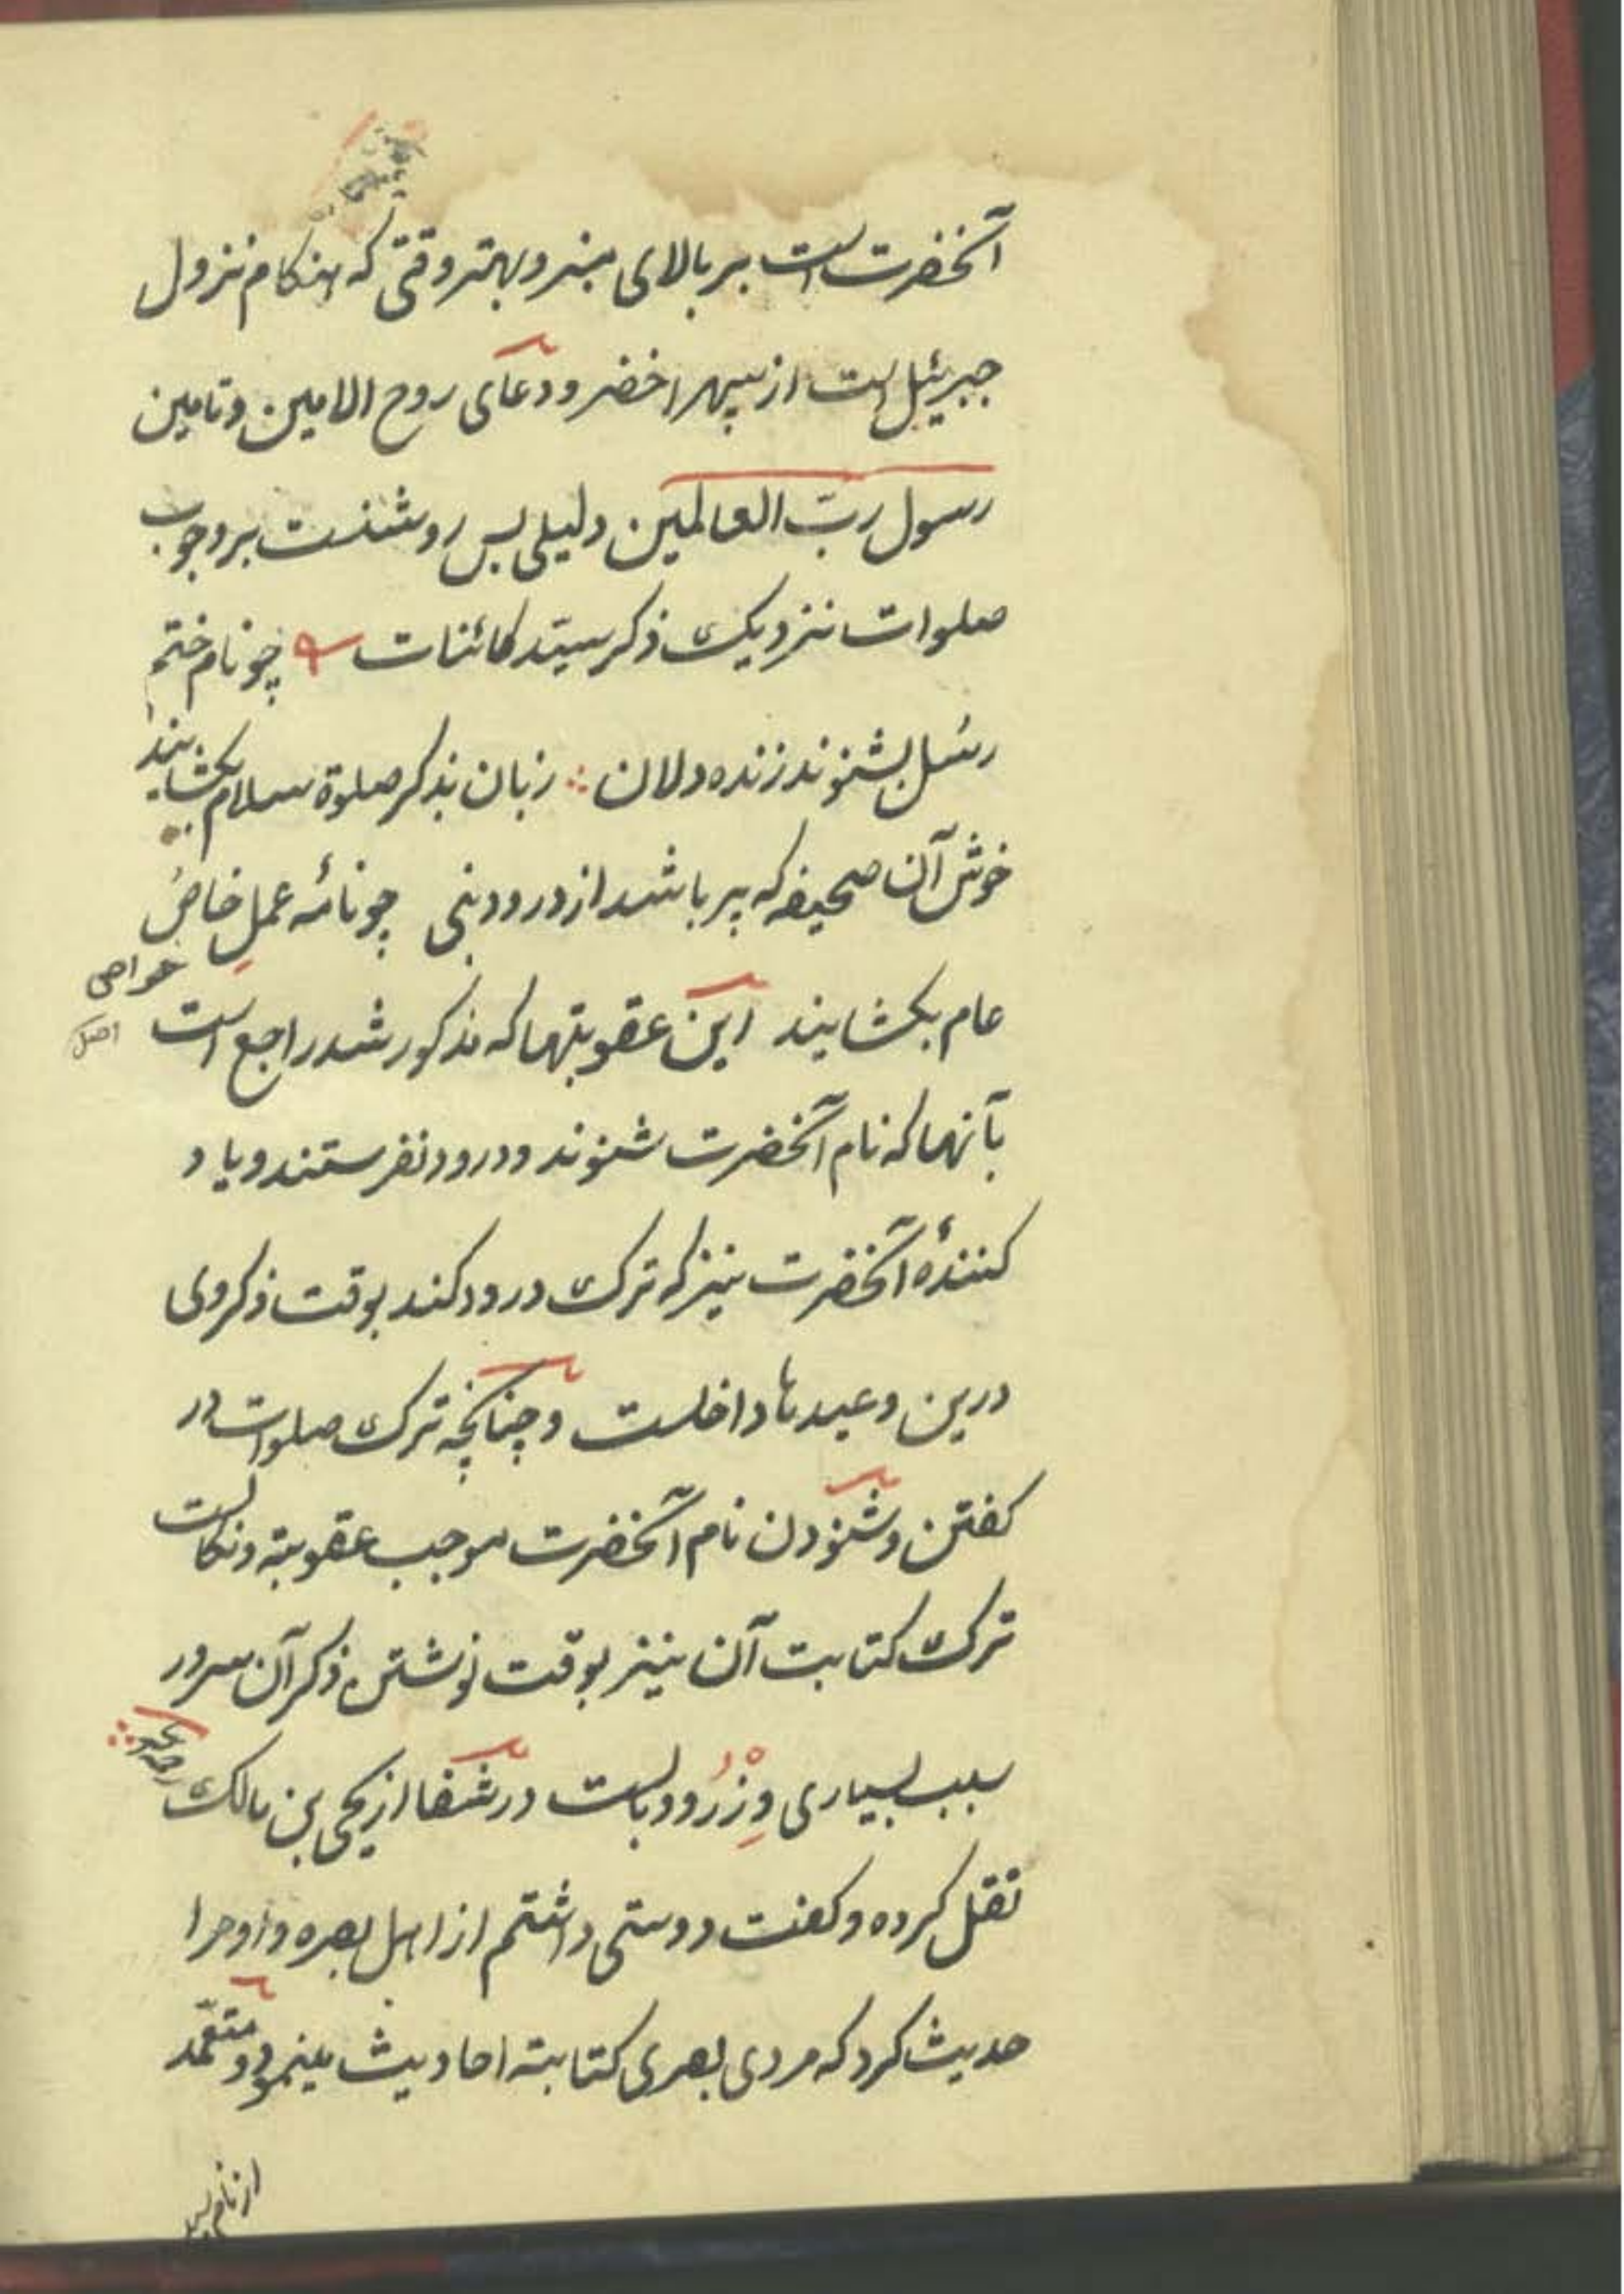 آنخضرت است بر بالای منبر و بهتر وقتی که هنکام نزول
جبرئیل است از سپهر اخضر و دعای روح الامین و تامین
رسول ربّ العالمین دلیلی بس روشنست بر وجوب
صلوات نزدیک ذکر سیّد کائنات چو نام ختم
رسُل بشنوند زنده دلان زبان بذکر صلوة سلام بکشایند
خوش آن صحیفه که پر باشد از درود نبی چو نامٔه عملِ خاص
خواص
عام بکشایند این عقوبتها که مذکور شد راجع است
اصل
بآنها که نام آنخضرت شنوند و درود نفرستند و یاد
کنندهٔ آنخضرت نیز که ترک درود کند بوقت ذکر وی
درین وعیدها داخلست و چنانچه ترک صلوات در
کفتن و شنودن نام آنخضرت موجب عقوبة و نکالست
ترک کتابت آن نیز بوقت نوشتن ذکر آن سرور
سبب بسیاری وِزْرُ و وبالست در شفا از یحیی بن مالک
نقل کرده و کفت دوستی داشتم از اهل بصره و او مرا
حدیث کرد که مردی بصری کتابة احادیث مینمود و متعمّد
از نام